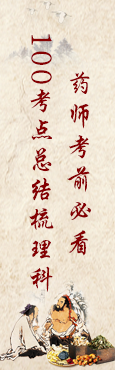 药师考前必看
100考点总结梳理科